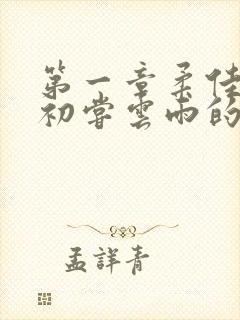 第一章柔佳
初尝雲雨的
孟詳青